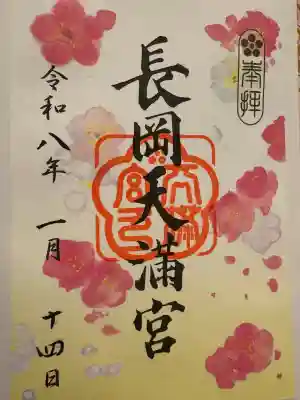 奉拝
長岡天満宮
令和八年 一月 十四日